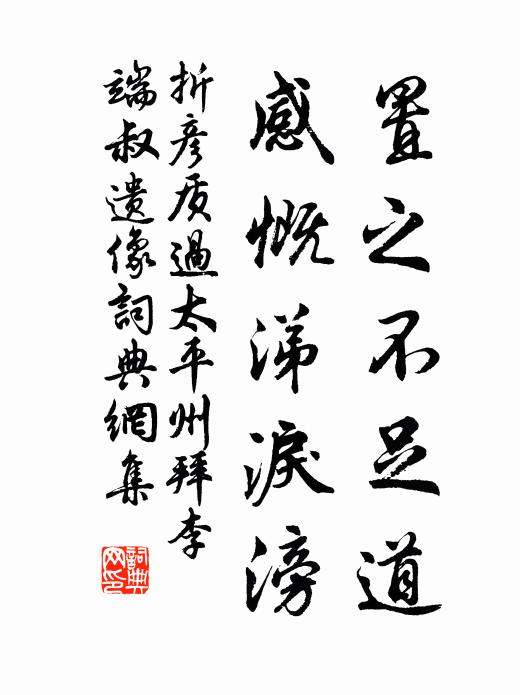 置之不足道
感慨涕淚滂
折彦质過太平州拜李
端叔遺像詞典網集
詞典
网印